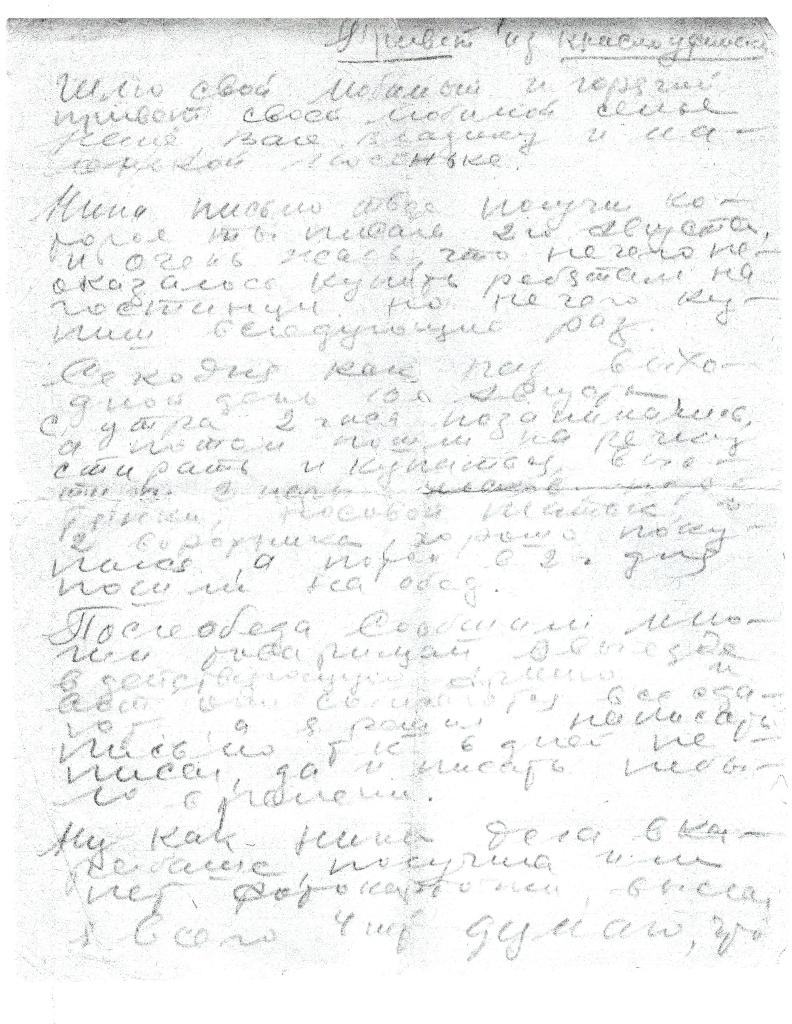 Привет из Красноуфимска
Шлю свой любимый и горячий
привет своей любимой семье
Нине, Вале, Владику и ма-
ленькой Люсеньке.
Нина письмо твое получил ко-
торое ты писала 2го августа,
и очень жаль, что нечего не-
оказалось купить ребятам на
гостинцы но нечего ку-
пиш вследующие раз.
Сегодня как раз выхо-
дной день 10го августа,
С утра 2 часа позанимались,
а потом пошли на речку
стирать и купаться,
носовой платок, и
2 воротничка, хорошо поку-
пался а потом в 2 ч дня
пошли на обед.
После обеда Сообщили мно-
гим товарищам о выезде
в действующую армию и
вот они собираются все сда-
ют, а я решил написать
письмо т.к. 6 дней не
писал, да и писать небы-
ло времени.
Ну как Нина дела в Ка-
рабаше, получила или
нет фотокарточки, выслал
я всего 4 шт думаю, что